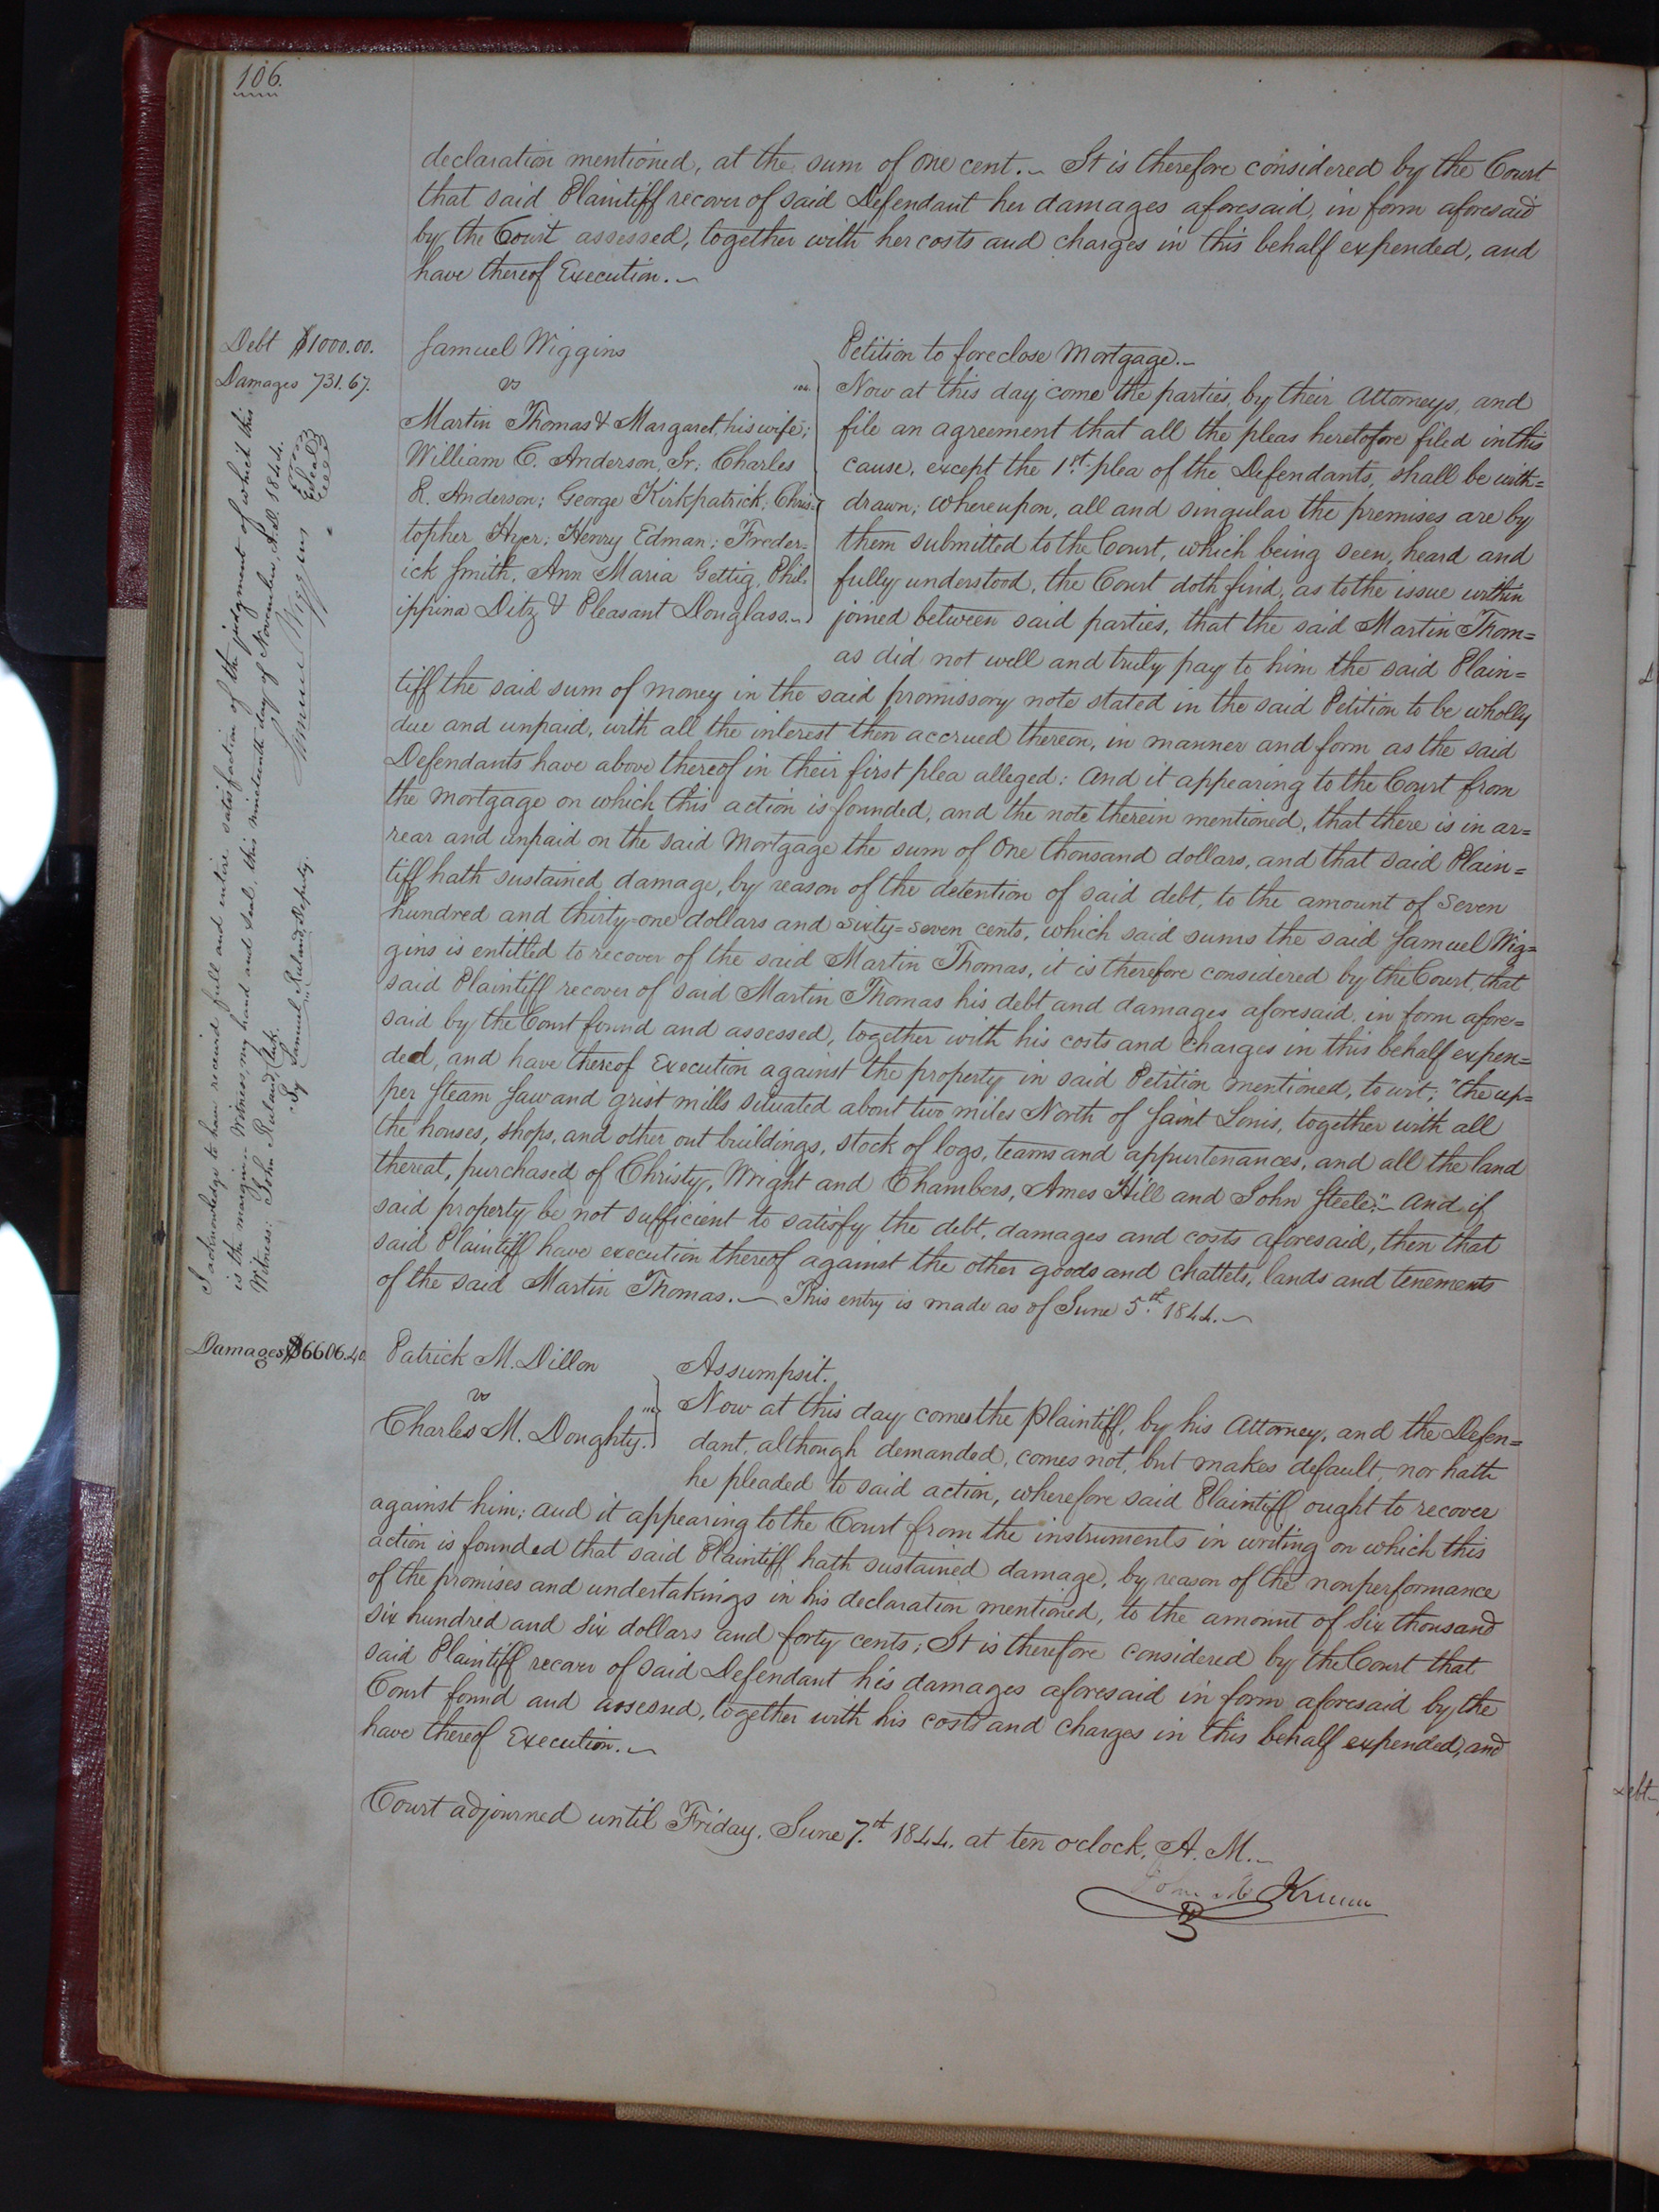 106.
declaration mentioned, at the sum of one cent.~ It is therefore considered by the Court
that said Plaintiff recover of said Defendant her damages aforesaid, in form aforesaid
by the Court assessed, together with her costs and charges in this behalf expended, and
have thereof Execution.~
Debt $1000.00.
Damages 731.67.
Samuel Wiggins
vs
Martin Thomas & Margaret, his wife;
William C. Anderson, Sr; Charles
R. Anderson; George Kirkpatrick; Chris-
topher Hyer; Henry Edman; Freder=
ick Smith, Ann Maria Gettig, Phil-
ippina Ditz & Pleasant Douglass.~
Petition to foreclose Mortgage.~
Now at this day come the parties, by their Attorneys, and
file an agreement that all the pleas heretofore filed in this
cause, except the 1st. plea of the Defendants, shall be with=
drawn; whereupon, all and singular the premises are by
them submitted to the Court, which being seen, heard and
fully understood, the Court doth find, as to the issue within
joined between said parties, that the said Martin Thom=
as did not well and truly pay to him the said Plain=
tiff the said sum of money in the said promissory note stated in the said Petition to be wholly
due and unpaid, with all the interest then accrued thereon, in manner and form as the said
Defendants have above thereof in their first plea alleged: And it appearing to the Court from
the mortgage on which this action is founded, and the note therein mentioned, that there is in ar=
rear and unpaid on the said Mortgage the sum of One thousand dollars, and that said Plain=
tiff hath sustained damage, by reason of the detention of said debt, to the amount of Seven
hundred and thirty=one dollars and sixty=seven cents, which said sums the said Samuel Wig=
gins is entitled to recover of the said Martin Thomas, it is therefore considered by the Court, that
said Plaintiff recover of said Martin Thomas his debt and damages aforesaid, in form afore=
said by the Court found and assessed, together with his costs and charges in this behalf expen=
ded, and have thereof Execution against the property in said Petition mentioned, to wit; "the up=
per Steam Saw and grist mills situated about two miles North of Saint Louis, together with all
the houses, shops, and other out buildings, stock of logs, teams and appurtenances, and all the land
thereat, purchased of Christy, Wright and Chambers, Ames Hill and John Steele;"~ And if
said property be not sufficient to satisfy the debt, damages and costs aforesaid, then that
said Plaintiff have execution thereof against the other goods and chattels, lands and tenements
of the said Martin Thomas.~ This entry is made as of June 5th. 1844.~
I acknowledge to have received full and entire satisfaction of the judgment of which this
is the margin. Witness my hand and seal, this nineteenth day of November, A.D. 1844.
Witness: John Ruland, Clerk. Samuel Wiggins Seal
By Samuel Ruland, Deputy.
Damages $6606.40.
Patrick M. Dillon
vs
Charles M. Doughty.
Assumpsit.
Now at this day comes the Plaintiff, by his Attorney, and the Defen=
dant, although demanded, comes not, but makes default, nor hath
he pleaded to said action, wherefore said Plaintiff ought to recover
against him; and it appearing to the Court from the instruments in writing on which this
action is founded that said Plaintiff hath sustained damage, by reason of the nonperformance
of the promises and undertakings in his declaration mentioned, to the amount of Six thousand
six hundred and six dollars and forty cents; It is therefore considered by the Court that
said Plaintiff recover of said Defendant his damages aforesaid in form aforesaid by the
Court found and assessed, together with his costs and charges in this behalf expended, and
have thereof Execution.~
Court adjourned until Friday, June 7.th 1844. at ten o'clock, A. M.~
John M Krum